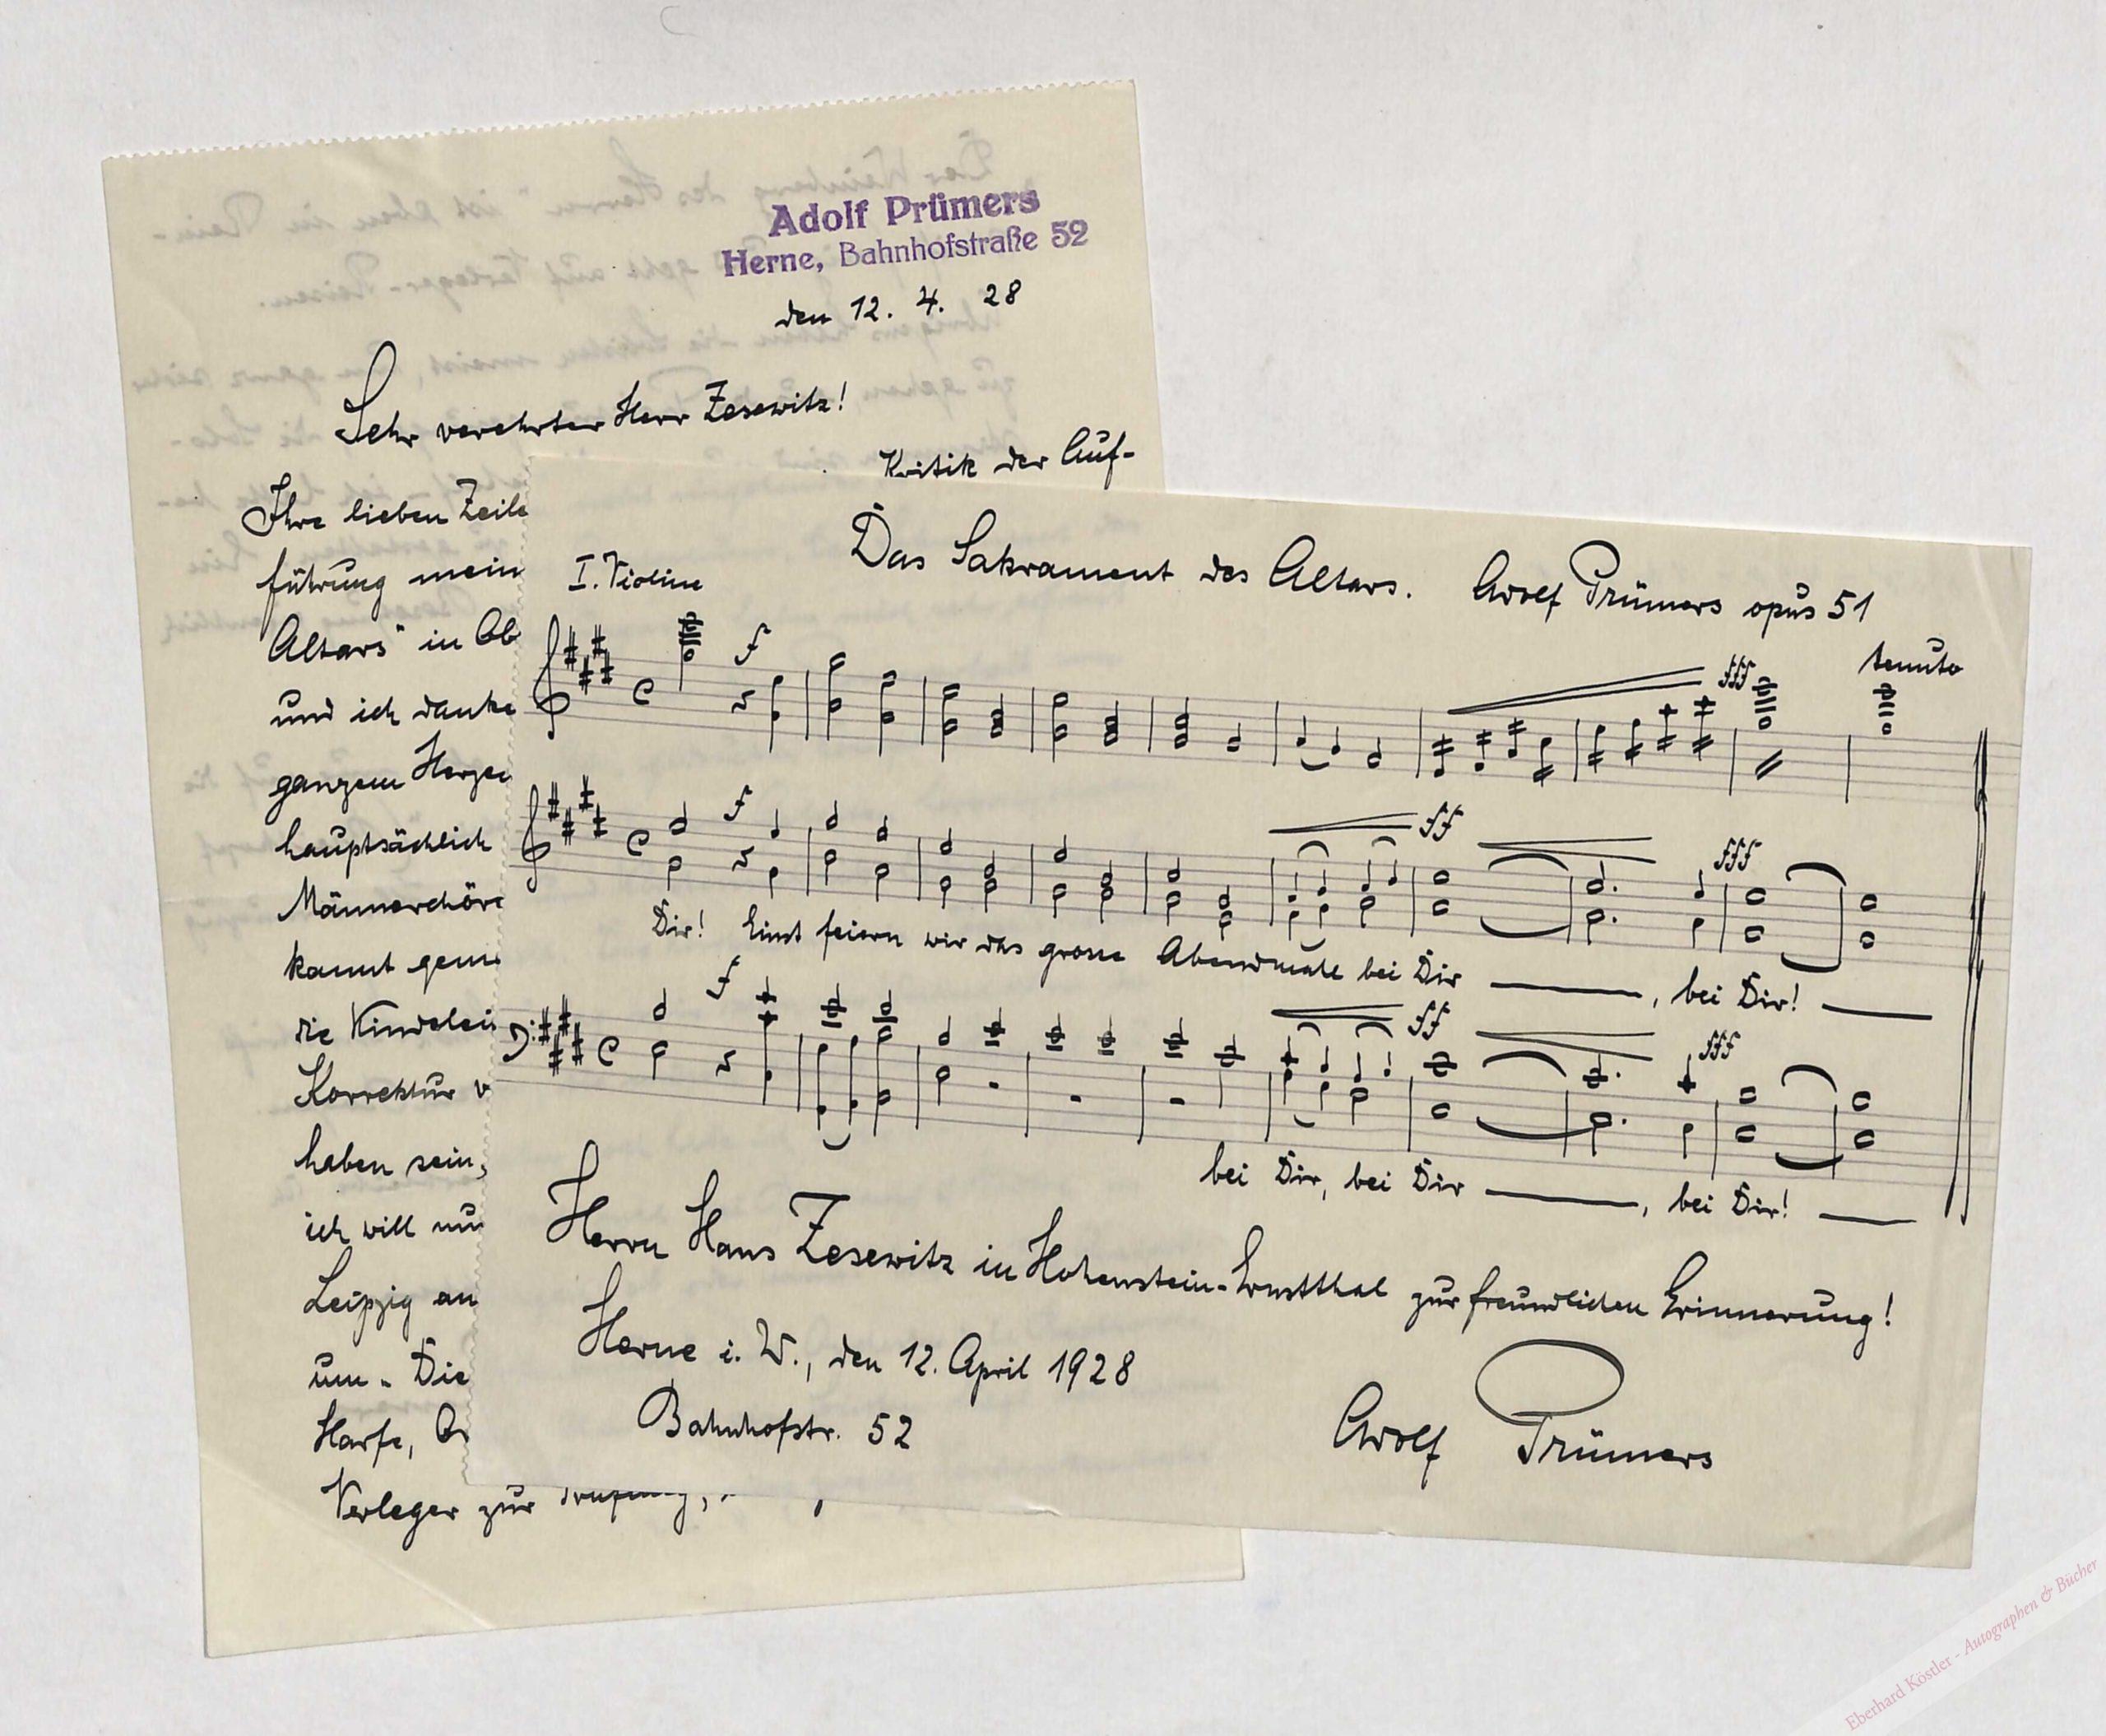 Adolf Prümers
Herne, Bahnhofstraße 52
den 12. 4. 28
Sehr verehrter Herr Zesewitz!
Ihre lieben Zeile
Kritik der Auf-
führung mein
Altars" in Ob
und ich danke
ganzem Herzen
hauptsächlich
Männerchöre
kannt gem
die Kindelei
Korrektur v
haben sein,
ich will nur
Leipzig an
um. Die
Harfe, Or
Verleger zur Prüfung,
Das Sakrament des Altars. Adolf Prümers opus 51
I. Violine
f fff tenuto
f ff fff
Dir! Einst feiern wir das grosse Abendmahl bei Dir , bei Dir!
f ff fff
bei Dir, bei Dir , bei Dir!
Herrn Hans Zesewitz in Hohenstein-Ernstthal zur freundlichen Erinnerung!
Herne i. W., den 12. April 1928
Bahnhofstr. 52
Adolf Prümers
Eberhard Köstler - Autographen & Bücher